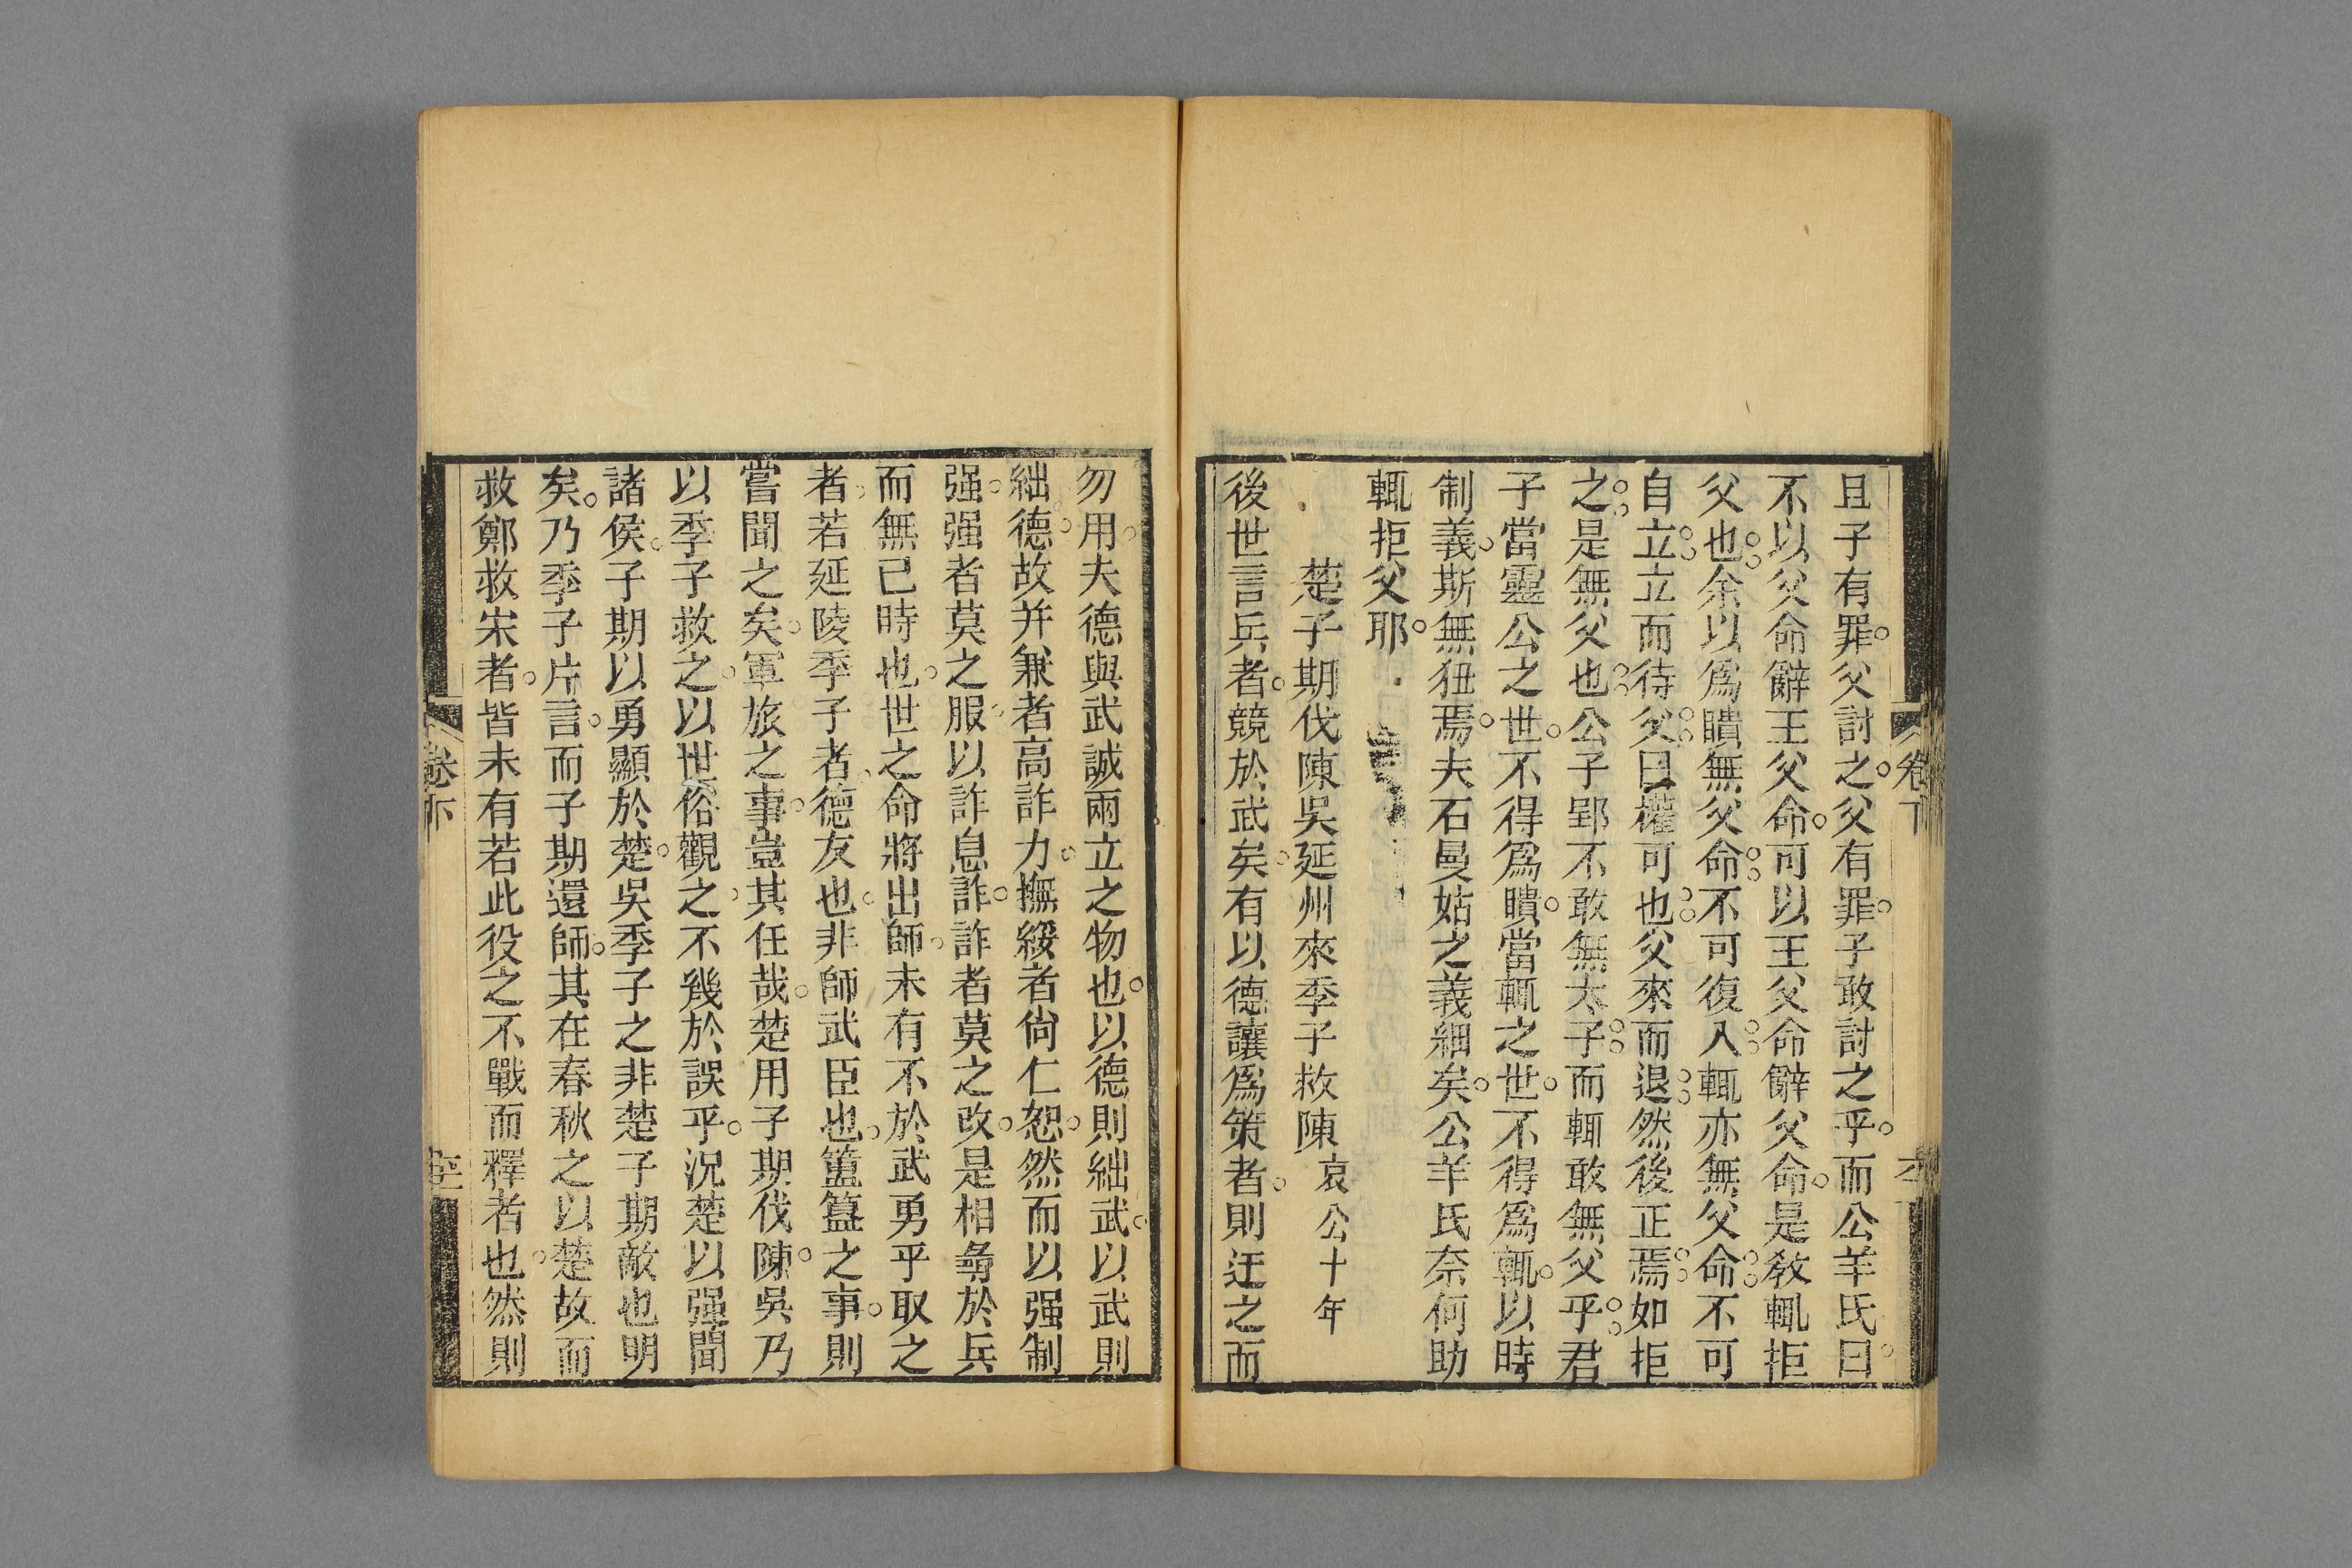 且子有罪父討之父有罪子敢討之乎而公羊氏曰
不以父命辭王父命可以王父命辭父命是教輒拒
父也余以爲瞶無父命不可復入輒亦無父命不可
自立立而待父曰權可也父來而退然後正焉如拒
之是無父也公子郢不敢無太子而輒敢無父乎君
子當靈公之世不得爲瞶當輒之世不得爲輒以時
制義斯無狃焉夫石曼姑之義細矣公羊氏奈何助
輒拒父耶
楚子期伐陳吳延州來季子救陳哀公十年
後世言兵者競於武矣有以德讓爲策者則迂之而
卷下
勿用夫德與武誠兩立之物也以德則絀武以武則
絀德故并兼者高詐力撫綏者尙仁恕然而以强制
强强者莫之服以詐息詐詐者莫之改是相尋於兵
而無已時也世之命將出師未有不於武勇乎取之
者若延陵季子者德友也非師武臣也簠簋之事則
嘗聞之矣軍旅之事豈其任哉楚用子期伐陳吳乃
以季子救之以世俗觀之不幾於誤乎況楚以强聞
諸侯子期以勇顯於楚吳季子之非楚子期敵也明
矣乃季子片言而子期還師其在春秋之以楚故而
救鄭救宋者皆未有若此役之不戰而釋者也然則
卷下